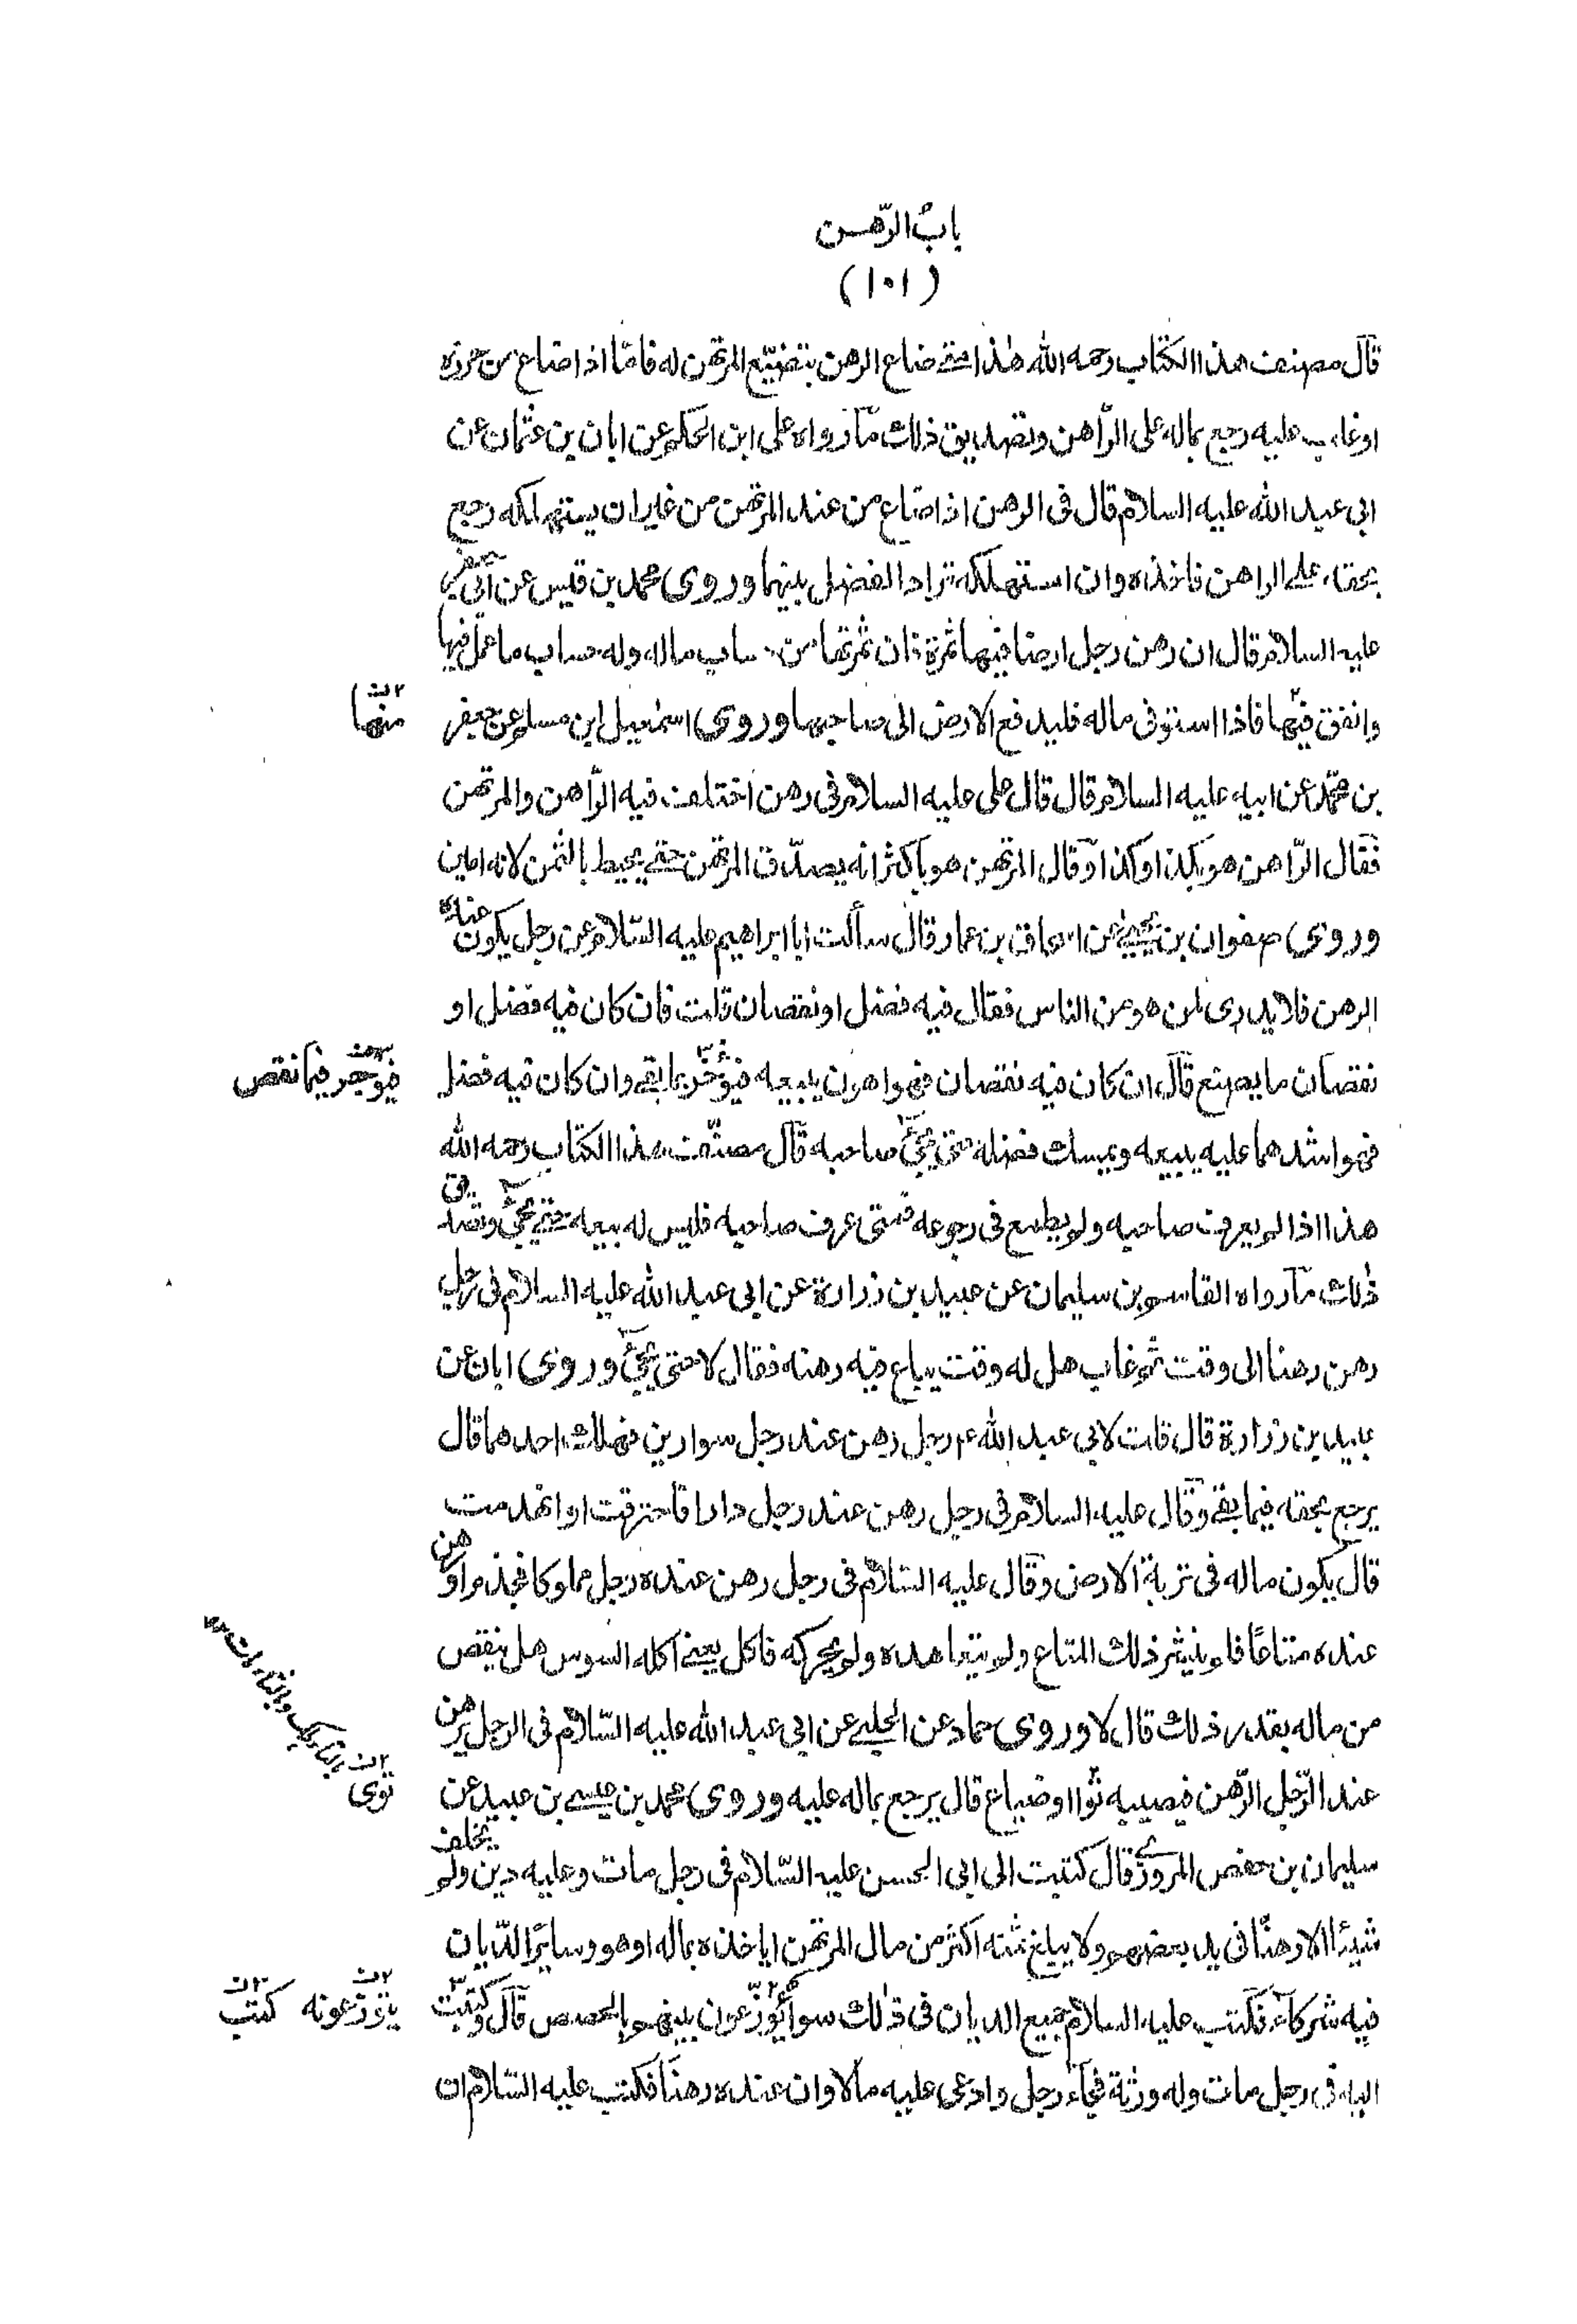 باب الرّهن
(١٠١)
قال مصنف هذا الكتاب رحمه الله هٰذا متى ضاع الرهن بتضييع المرتهن له فامّا اذا ضاع من حرزه
او غلب عليه رجع بماله على الرّاهن وتصديق ذلك ما رواه على ابن الحكم عن ابان بن عثمان عن
ابى عبد الله عليه السلام قال فى الرهن اذا ضاع من عند المرتهن من غير ان يستهلكه رجع
بحقه على الراهن فاخذه وان استهلكه تراد الفضل بينهما وروى محمد بن قيس عن ابى جعفر
عليه السلام قال ان رهن رجل ارضا فيها ثمرة فان ثمرتها من حساب ماله وله حساب ما عمل فيها
وانفق فيها فاذا استوفى ماله فليدفع الارض الى صاحبها وروى اسمٰعيل ابن مسلم عن جعفر
منها ٢ ن
بن محمّد عن ابيه عليه السلام قال قال على عليه السلام فى رهن اختلف فيه الرّاهن والمرتهن
فقال الرّاهن هو بكذا وكذا وقال المرتهن هو باكثر انه يصدّق المرتهن حتى يحيط بالثمن لانه امين
وروى صفوان بن يحيىٰ عن اسحاق بن عمار قال سألت ابا ابراهيم عليه السّلام عن رجل يكون عنده
الرهن فلا يدرى لمن هو من الناس فقال فيه فضل او نقصان قلت فان كان فيه فضل او
نقصان ما يصنع قال ان كان فيه نقصان فهو اهون يبيعه فيؤخر بما بقى وان كان فيه فضل
فيوجر فيما نقص
فهو اشدهما عليه يبيعه ويمسك فضله حتى يجئ صاحبه قال مصنّف هذا الكتاب رحمه الله
هذا اذا لم يعرف صاحبه ولم يطمع فى رجوعه فمتى عرف صاحبه فليس له بيعه حتى يجئ وتصديق
ذٰلك ما رواه القاسم بن سليمان عن عبيد بن زرارة عن ابى عبد الله عليه السلام فى رجل
رهن رهنا الى وقت ثم غاب هل له وقت يباع فيه رهنه فقال لا حتى يجئ وروى ابان عن
عبيد بن زرارة قال قلت لابى عبد الله ع رجل رهن عند رجل سوارين فهلك احدهما قال
يرجع بحقه فيما بقى وقال عليه السلام فى رجل رهن عند رجل دارا فاحترقت او انهدمت
قال يكون ماله فى تربة الارض وقال عليه السّلام فى رجل رهن عنده رجل مملوكا فجذم او رهن
عنده متاعًا فلم ينشر ذلك المتاع ولم يتعاهده ولم يحركه فاكل يعنى اكله السوس هل ينقص
من ماله بقدر ذلك قال لا وروى حماد عن الحلبى عن ابى عبد الله عليه السّلام فى الرجل يرهن
عند الرّجل الرّهن فيصيبه توا او ضياع قال يرجع بماله عليه وروى محمد بن عيسى بن عبيد عن
توى ٢ ن
سليمان بن حفص المروزى قال كتبت الى ابى الحسن عليه السّلام فى رجل مات وعليه دين ولم يخلف
شيئا الا رهنًا فى يد بعضهم ولا يبلغ ثمنه اكثر من مال المرتهن اياخذه بماله او هو وسائر الدّيان
فيه شركاء فكتب عليه السلام جميع الديان فى ذلك سوآء يوزّعون بينهم بالحصص قال وكتبت
يتوزعونه ٢ ن كتب ٣ ن
اليه فى رجل مات وله ورثة فجاء رجل وادعى عليه مالا وان عنده رهنا فكتب عليه السّلام ان